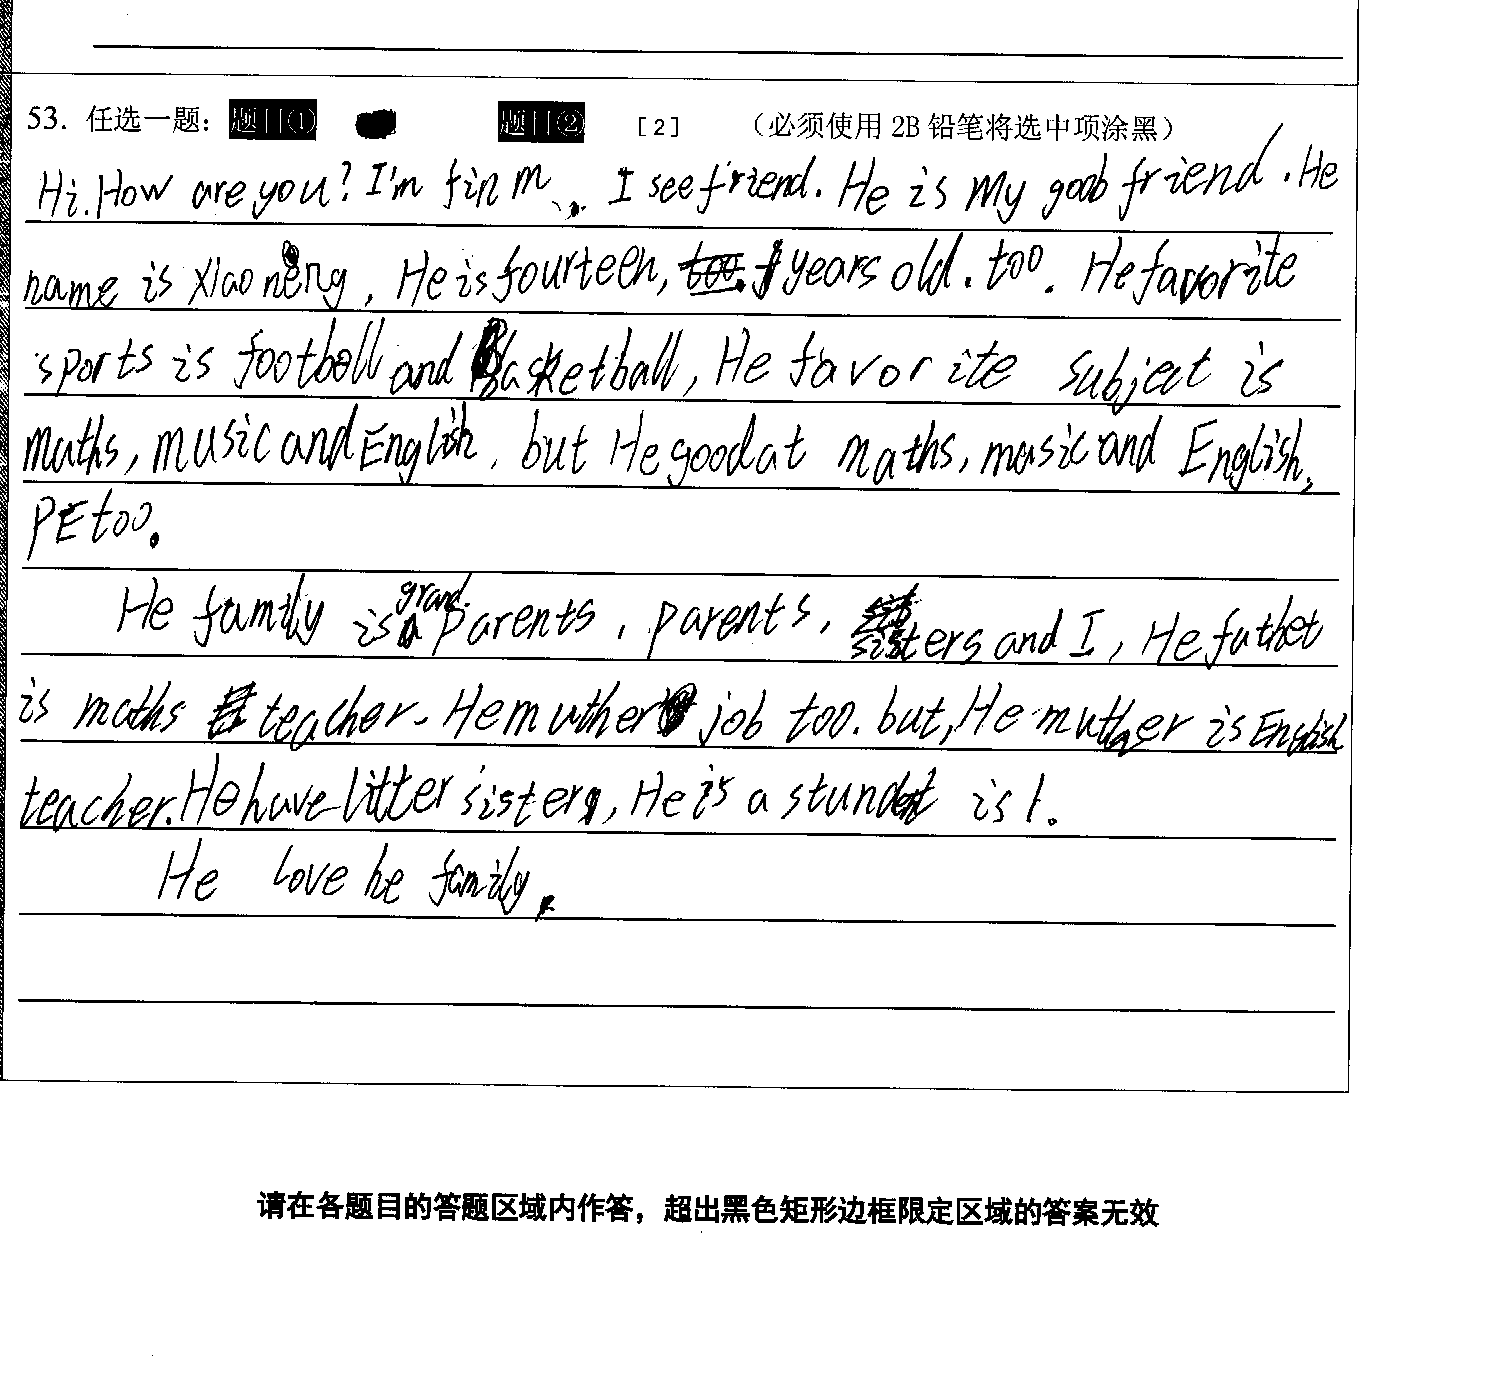 53. 任选一题： 题目① 题目② [2] （必须使用 2B 铅笔将选中项涂黑）
Hi. How are you? I'm fin m. I see friend. He is my goob friend. He
name is Xiao neng, He is fourteen, too. years old. too. He favorite
sports is football and Basketball, He favorite subject is
maths, music and English, but He good at maths, music and English,
PE too.
He family is grand parents, parents, sisters and I, He futhet
is maths teacher. He muther job too. but, He muther is English
teacher. He huve litter sister, He is a stundet is 1.
He love he family.
请在各题目的答题区域内作答，超出黑色矩形边框限定区域的答案无效